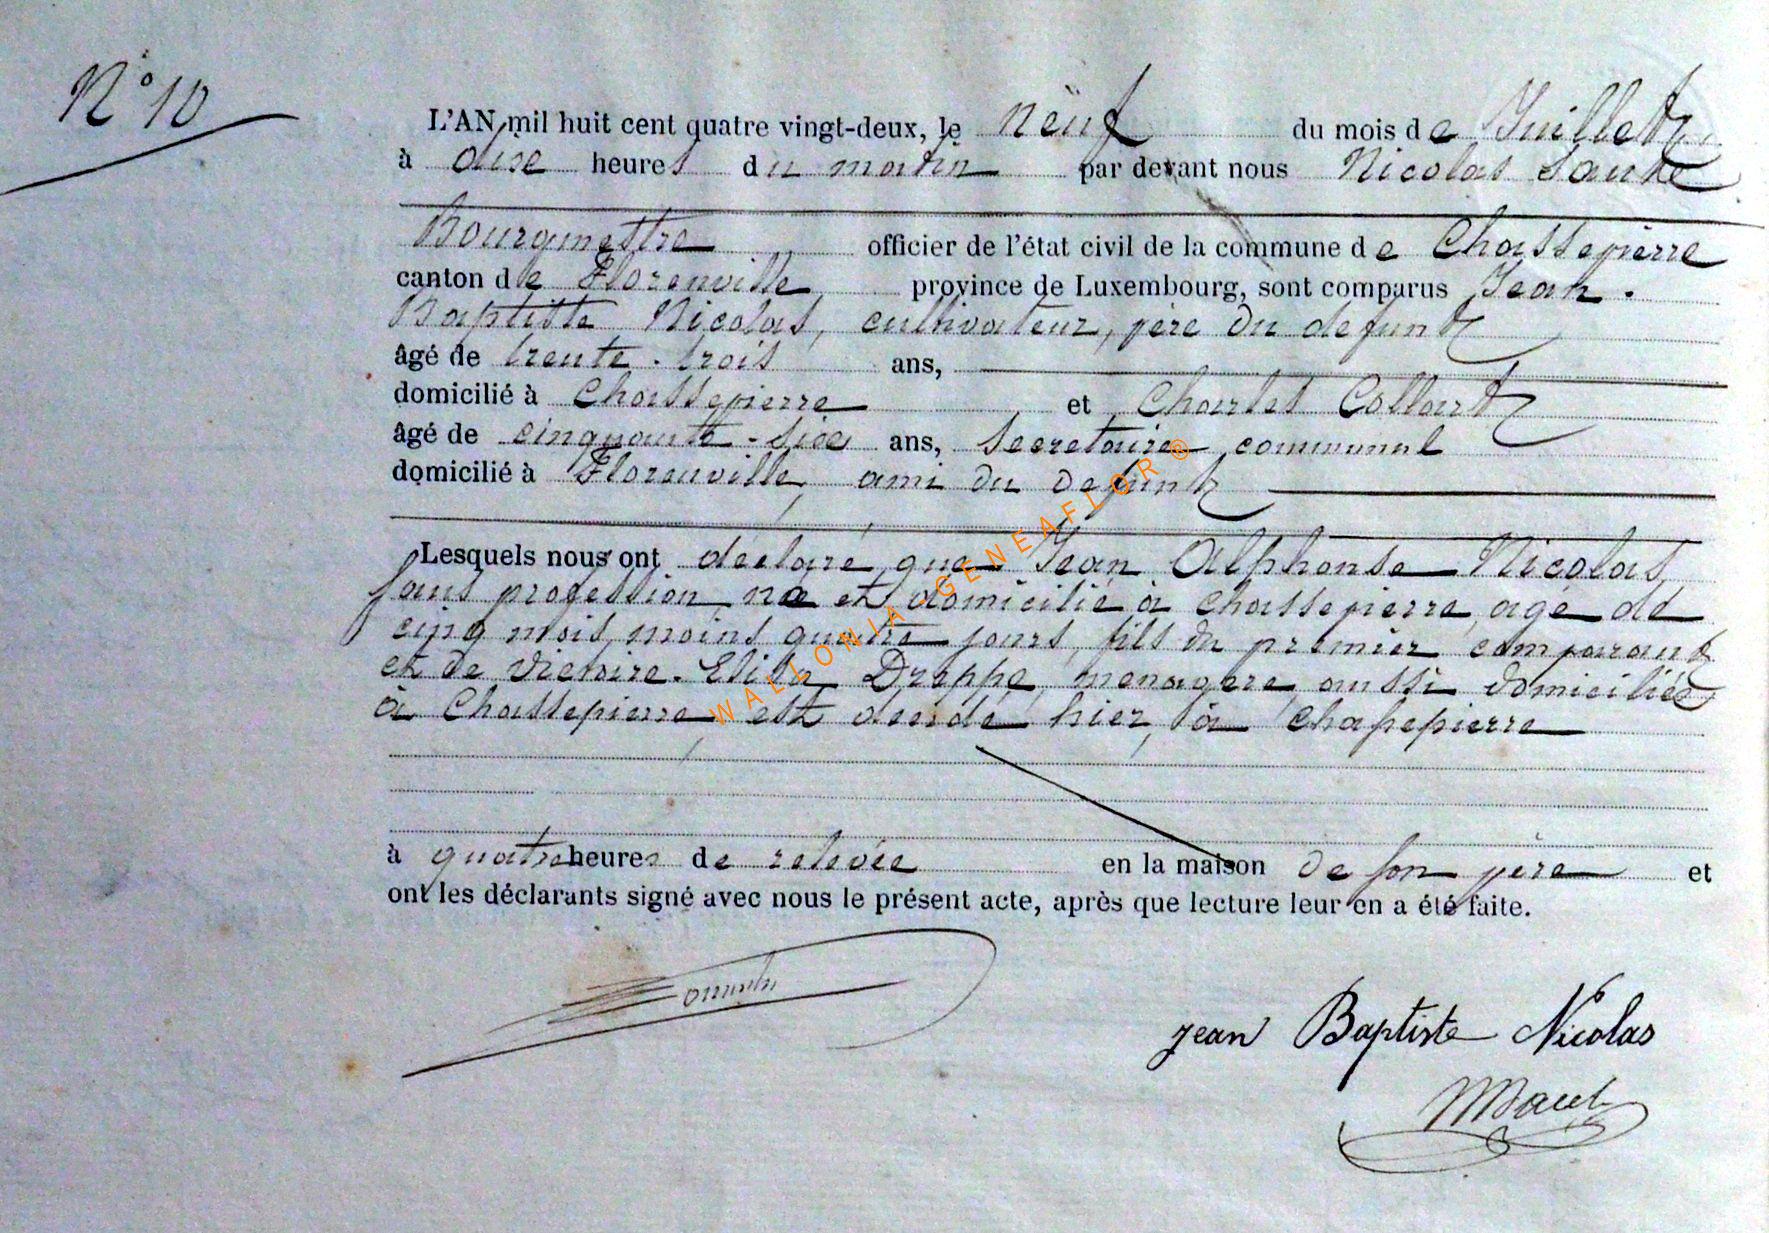 N° 10
L'AN mil huit cent quatre vingt-deux, le neuf du mois de Juillet,
à dixe heures du matin par devant nous Nicolas
Bourgmestre officier de l'état civil de la commune de Chassepierre
canton de Florenville province de Luxembourg, sont comparus Jean-
Baptiste Nicolas, cultivateur, père du defunt
âgé de trente-trois ans,
domicilié à Chassepierre et Charles Collart
âgé de cinquante-six ans, secretaire communal
domicilié à Florenville, ami du defunt
Lesquels nous ont declaré que Jean Alphonse Nicolas,
sans profession, né et domicilié à Chassepierre, agé de
cinq mois, moins quatre jours, fils du premier comparant
et de Victoire-Elisa Drappe, menagere, aussi domiciliée
à Chassepierre, est decede hier, à Chassepierre
à quatre heures de relevée en la maison de son père et
ont les déclarants signé avec nous le présent acte, après que lecture leur en a été faite.
jean Baptiste Nicolas
WALLONIA GÉNÉAFLOR®